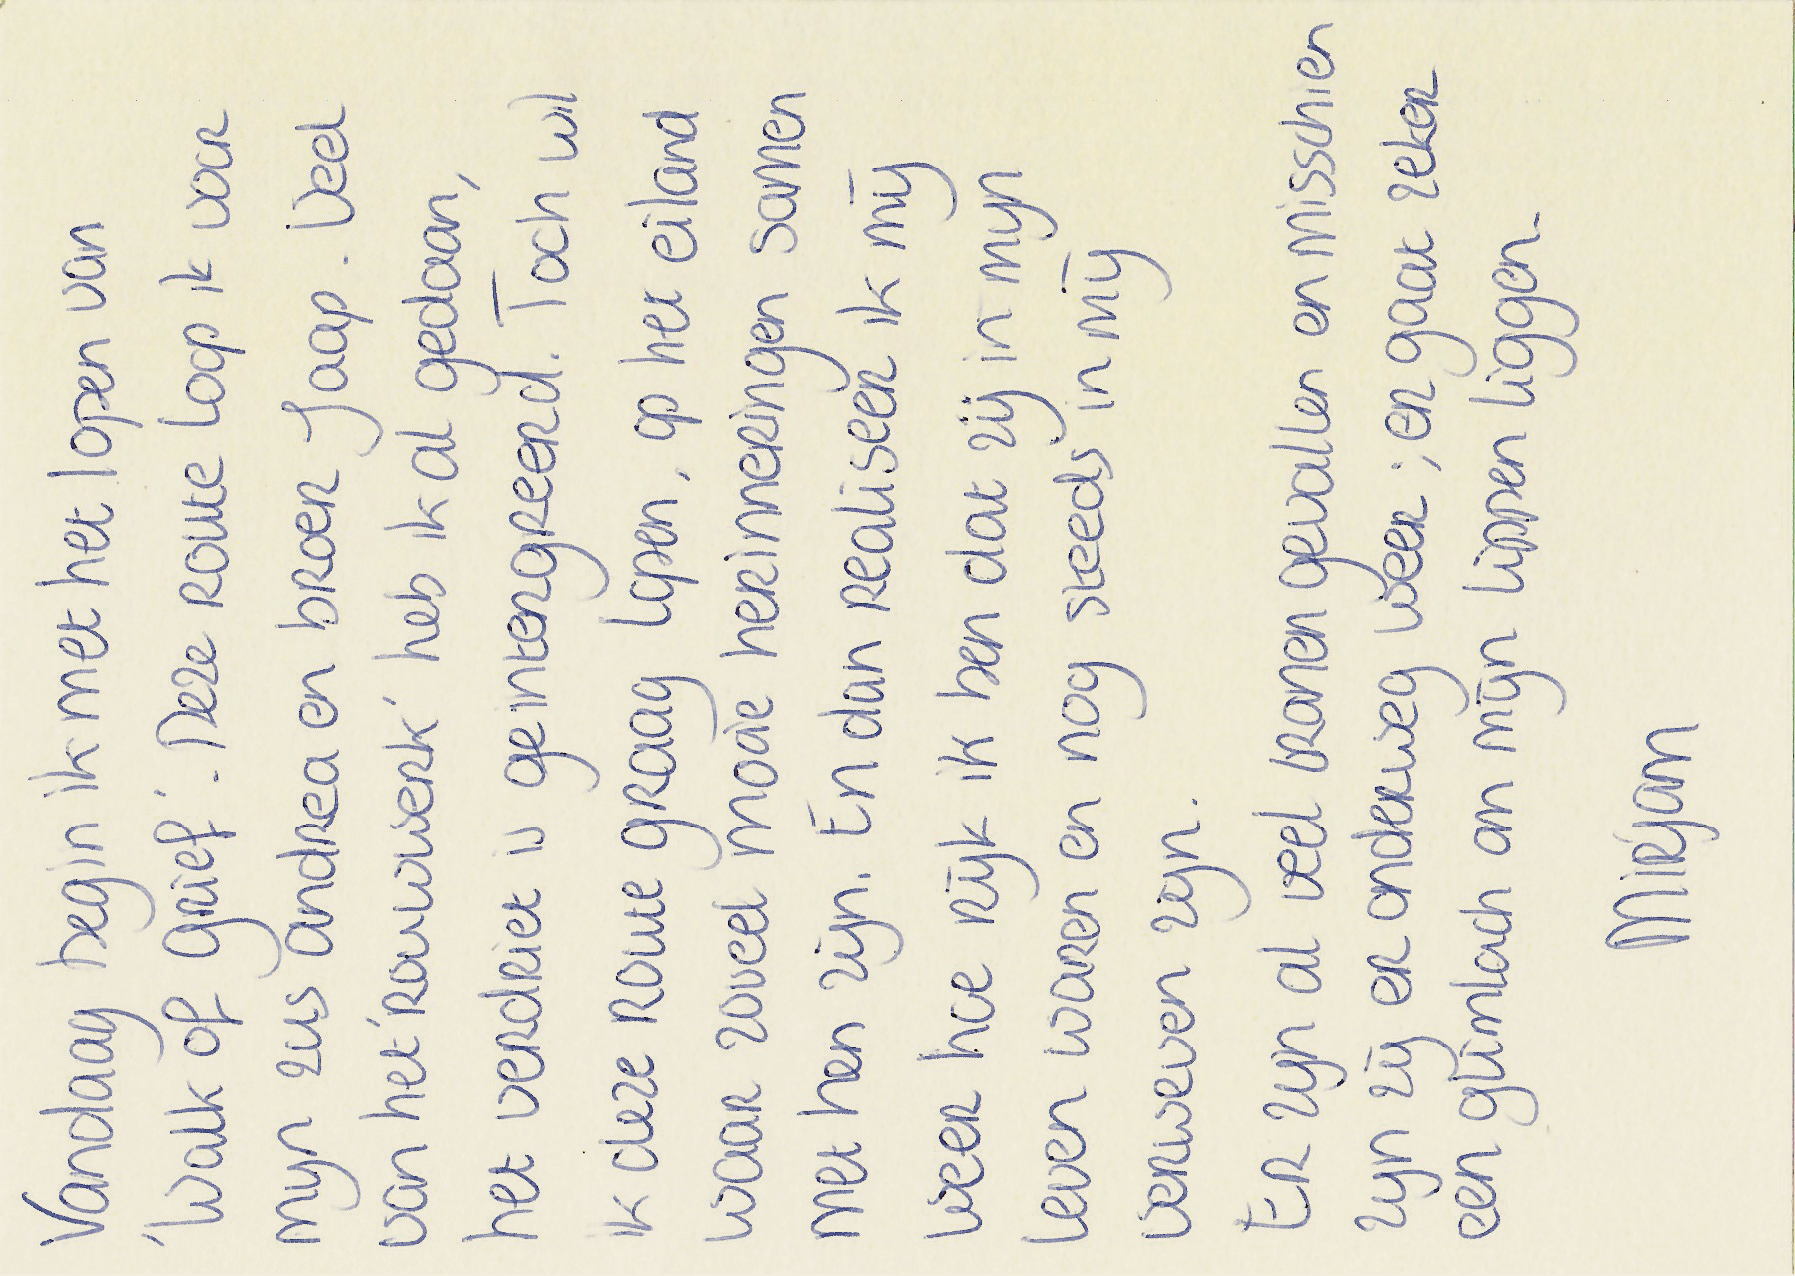 Vandaag begin ik met het lopen van
'Walk of Grief'. Deze route loop ik voor
mijn zus Andrea en broer Jaap. Veel
van het 'rouwwerk' heb ik al gedaan,
het verdriet is geintergreerd. Toch wil
ik deze route graag lopen, op het eiland
waar zoveel mooie herinneringen samen
met hen zijn. En dan realiseer ik mij
weer hoe rijk ik ben dat zij in mijn
leven waren en nog steeds in mij
verweven zijn.
Er zijn al veel tranen gevallen en misschien
zijn zij er onderweg weer; er gaat zeker
een glimlach om mijn lippen liggen.
Mirjam